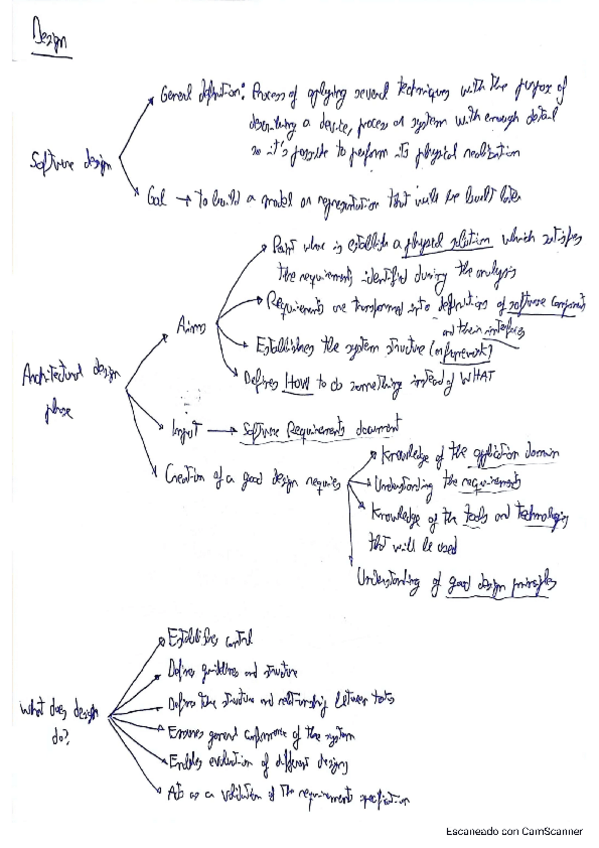 Design
General definition: Process of applying several techniques with the purpose of
describing a device, process or system with enough detail
so it's possible to perform its physical realization
Software design
Goal → to build a model or representation that will be built later
Point where is establish a physical solution which satisfies
the requirements identified during the analysis
Requirements are transformed into definitions of software components
and their interfaces
Aims
Establishes the system structure (or framework)
Defines HOW to do something instead of WHAT
Architectural design
phase
Input → Software Requirements document
Creation of a good design requires
Knowledge of the application domain
Understanding the requirements
Knowledge of the tools and technologies
that will be used
Understanding of good design principles
Establishes control
Defines guidelines and structure
Defines the structure and relationship between
What does design
do?
Ensures general conformance of the system
Enables evaluation of different designs
Acts as a validation of the requirements specification
Escaneado con CamScanner